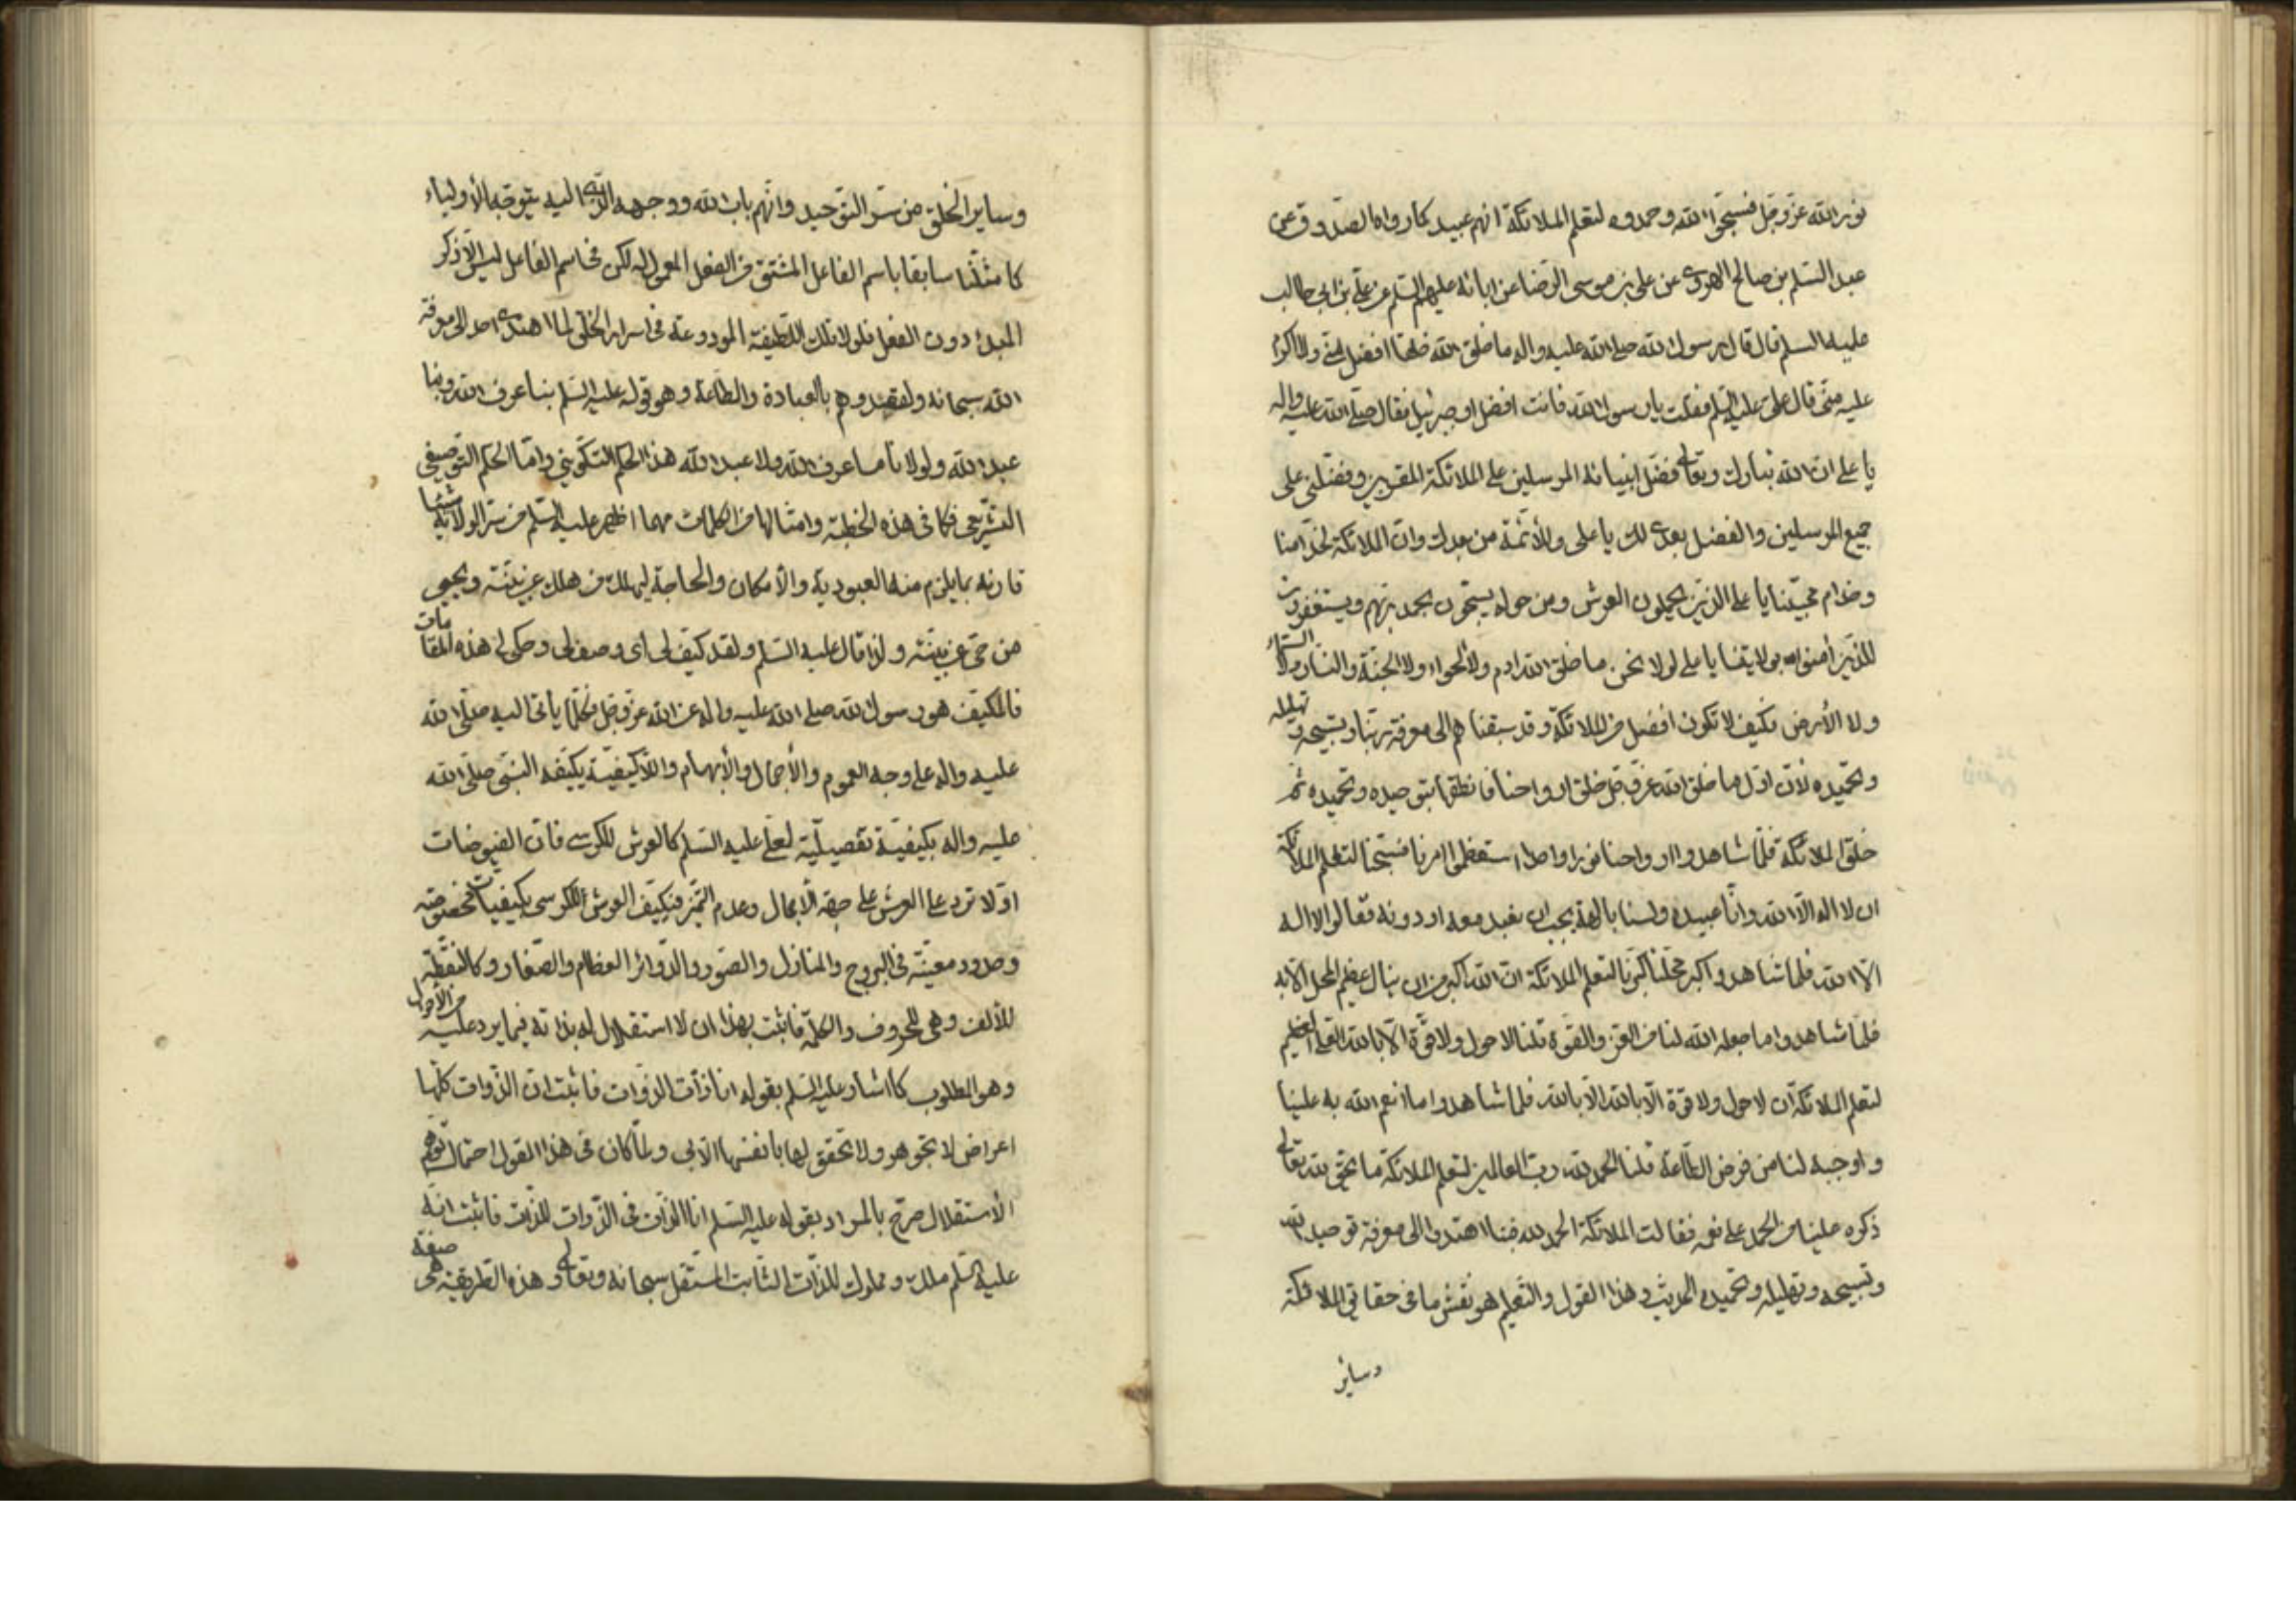 نور الله عز وجل فسبحوا الله وحمدوه لتعلم الملائكة انهم عبيد كما رواه الصدوق عن
عبد السلم بن صالح الهروى عن على بن موسى الرضا عن ابائه عليهم السلم عن على بن ابى طالب
عليه السلم قال قال رسول الله صلى الله عليه واله ما خلق الله خلقا افضل منى ولا اكرم
عليه منى قال على عليه السلم فقلت يا رسول الله فانت افضل او جبرئيل فقال صلى الله عليه واله
يا على ان الله تبارك وتعالى فضل انبيائه المرسلين على الملائكة المقربين وفضلنى على
جميع المرسلين والفضل بعدى لك يا على وللأئمة من بعدك وان الملائكة لخدامنا
وخدام محبينا يا على الذين يحملون العرش ومن حوله يسبحون بحمد ربهم ويستغفرون
للذين أمنوا بولايتنا يا على لولا نحن ما خلق الله ادم ولا الحواء ولا الجنة والنار ولا السماء
ولا الأرض فكيف لا نكون افضل من الملائكة وقد سبقناهم الى معرفة ربنا وتسبيحه وتهليله
وتحميده لأن اول ما خلق الله عز وجل خلق ارواحنا فانطقها بتوحيده وتحميده ثم
خلق الملائكة فلما شاهدوا ارواحنا نورا واحدا استعظموا امرنا فسبحنا لتعلم الملائكة
ان لا اله الا الله وانا عبيد ولسنا بالهة يجب ان نعبد معه او دونه فقالوا لا اله
الا الله فلما شاهدوا كبر محلنا كبرنا لتعلم الملائكة ان الله اكبر من ان ينال عظيم المحل الا به
فلما شاهدوا ما جعله الله لنا من العز والقوة قلنا لا حول ولا قوة الا بالله العلى العظيم
لتعلم الملائكة ان لا حول ولا قوة الا بالله الا بالله فلما شاهدوا ما انعم الله به علينا
واوجبه لنا من فرض الطاعة قلنا الحمد لله رب العالمين لتعلم الملائكة ما يحق لله تعالى
ذكره علينا من الحمد على نعمه فقالت الملائكة الحمد لله فبنا اهتدوا الى معرفة توحيد الله
وتسبيحه وتهليله وتحميده الحديث وهذا القول والتعليم هو نقش ما فى حقايق الملائكة
وساير
وساير الخلق من سر التوحيد وانهم باب الله ووجهه الذى اليه يتوجه الأولياء
كما مثلنا سابقا باسم الفاعل المشتق من الفعل المعمول له لكن فى اسم الفاعل ليس الا ذكر
المبدء دون الفعل فلولا تلك اللطيفة المودوعة فى اسرار الخلق لما اهتدى احد الى معرفة
الله سبحانه ولفقدوهم بالعبادة والطاعة وهو قوله عليه السلم بنا عرف الله وبنا
عبد الله ولولانا ما عرف الله ولا عبد الله هذا الحكم التكوينى واما الحكم التوصيفى
التشريعى فكما فى هذه الخطبة وامثالها من الكلمات مهما اظهر عليه السلم من سر الولاية شيئا
قارنه بما يلزم منه العبودية والأمكان والحاجة ليهلك من هلك عن بينة ويحيى
من حى عن بينة ولذا قال عليه السلم ولقد كيف لى اى وصف لى وحكى لى هذه المقامات
فالمكيف هو رسول الله صلى الله عليه واله عن الله عز وجل فكلما يأتى اليه صلى الله
عليه واله على وجه العموم والأجمال والأبهام واللاكيفية يكيفه النبى صلى الله
عليه واله بكيفية تفصيلية لعلى عليه السلم كالعرش للكرسى فان الفيوضات
اولا ترد على العرش على جهة الأجمال وعدم التميز فيكيف العرش للكرسى بكيفيات مخصوصة
وحدود معينة فى البروج والمنازل والصور والدوائر العظام والصغار وكالنقطة
للألف وهى للحروف والكلمة فاثبت بهذا ان لا استقلال له بذاته فيما يرد عليه من الأحوال
وهو المطلوب كما اشار عليه السلم بقوله انا ذات الذوات فاثبت ان الذوات كلها
اعراض لا تجوهر ولا تحقق لها بانفسها الا بى ولما كان فى هذا القول احتمال توهم
الأستقلال صرح بالمراد بقوله عليه السلم انا الذات فى الذوات للذات فاثبت انه
عليه السلم ملك ومملوك للذات الثابت المستقل سبحانه وتعالى وهذه الطريقة هى صفة